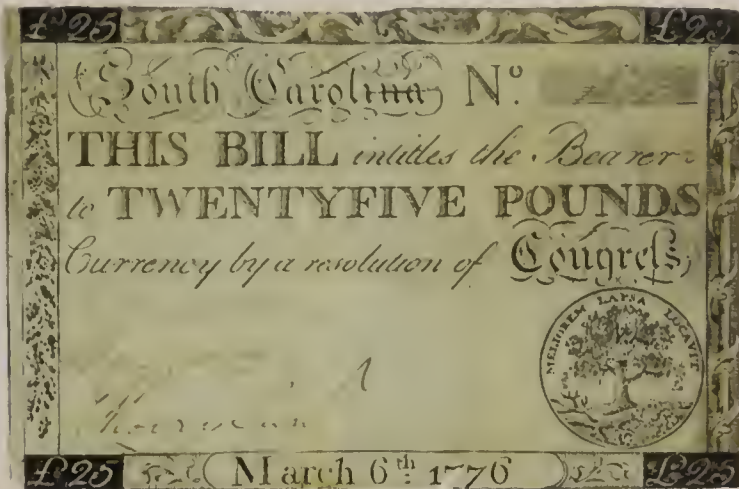 £25 £25
South Carolina Nº.
THIS BILL intitles the Bearer
to TWENTYFIVE POUNDS
Currency by a resolution of Congreſs,
MELIOREM LAPSA LOCAVIT
£25 March 6th. 1776 £25